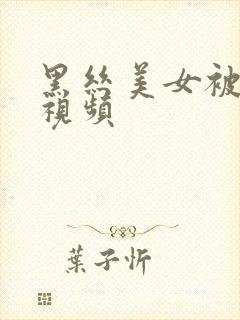 黑絲美女被
視頻
葉子忻